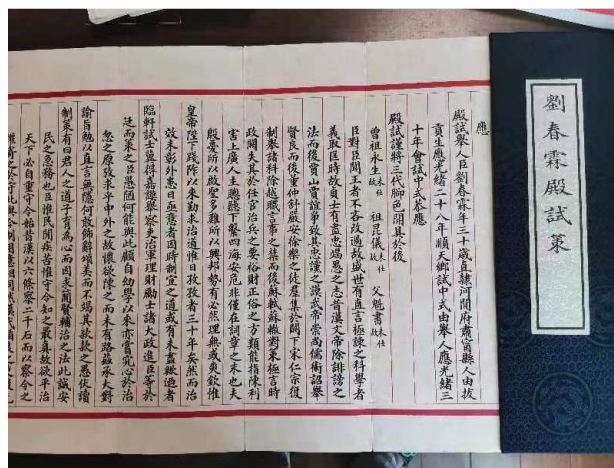 劉春霖殿試策
應
殿試舉人臣劉春霖年三十歲直隸河間府肅甯縣人由拔
貢生應光緒二十八年順天鄉試中式由舉人應光緒三
十年會試中式恭應
殿試謹將三代腳色開具於後
曾祖永生未仕故 祖昆儀未仕故 父魁書未仕故
臣對臣聞王者不吝改過故盛世有直言極諫之科學者
義取匡時故貞士有盡忠竭愚之志昔漢文帝除誹謗之
法而後賈山賈誼爭致其忠讜之謨武帝崇尚儒術詔舉
賢良而後董仲舒嚴安徐樂之徒羣集於闕下宋仁宗復
制舉諸科除越職言事之禁而後蘇軾蘇轍對策極言時
政闕失其於任官治兵之要裕財正俗之方類能指陳利
害上廣人主聰聽下繫四海安危非僅在詞章之末也夫
殷憂所以啟聖多難所以興邦勢有必然理無或爽欽惟
皇帝陛下踐阼以來勤求治道惟日孜孜者三十年矣然而治
效未彰外患日亟意者因時制宜之道或有未盡歟迺者
臨軒試士冀得嘉謨舉察吏治軍理財勵士諸大政進臣等於
廷而策之臣愚陋何能與此顧自幼學以來亦嘗究心於治
忽之原攷求乎中外之故懷欲陳之而未有路茲承大對
諭旨勉以直言無隱何敢飾辭頌美而不竭其款款之愚伏讀
制策有曰君人之道子育為心而因求簡賢輔治之法此誠安
民之急務也臣惟民間疾苦惟守令知之最真故欲平治
天下必自重守令始昔漢以六條察二千石而以察令之